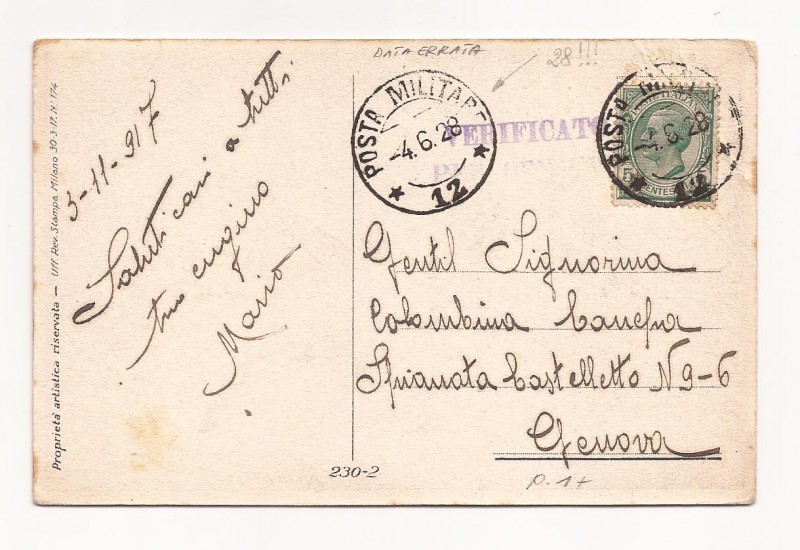 DATA ERRATA
28!!!
Proprietà artistica riservata — Uff. Rev. Stampa Milano 30·3·17. N° 174
3-11-917
Saluti cari a tutti
tuo cugino
Mario
POSTA MILITARE
-4.6.28
12
VERIFICATO
POSTA MILITARE
-4.6.28
12
5
CENTES
Gentil Signorina
Colombina Canepa
Spianata Castelletto N 9-6
Genova
230-2